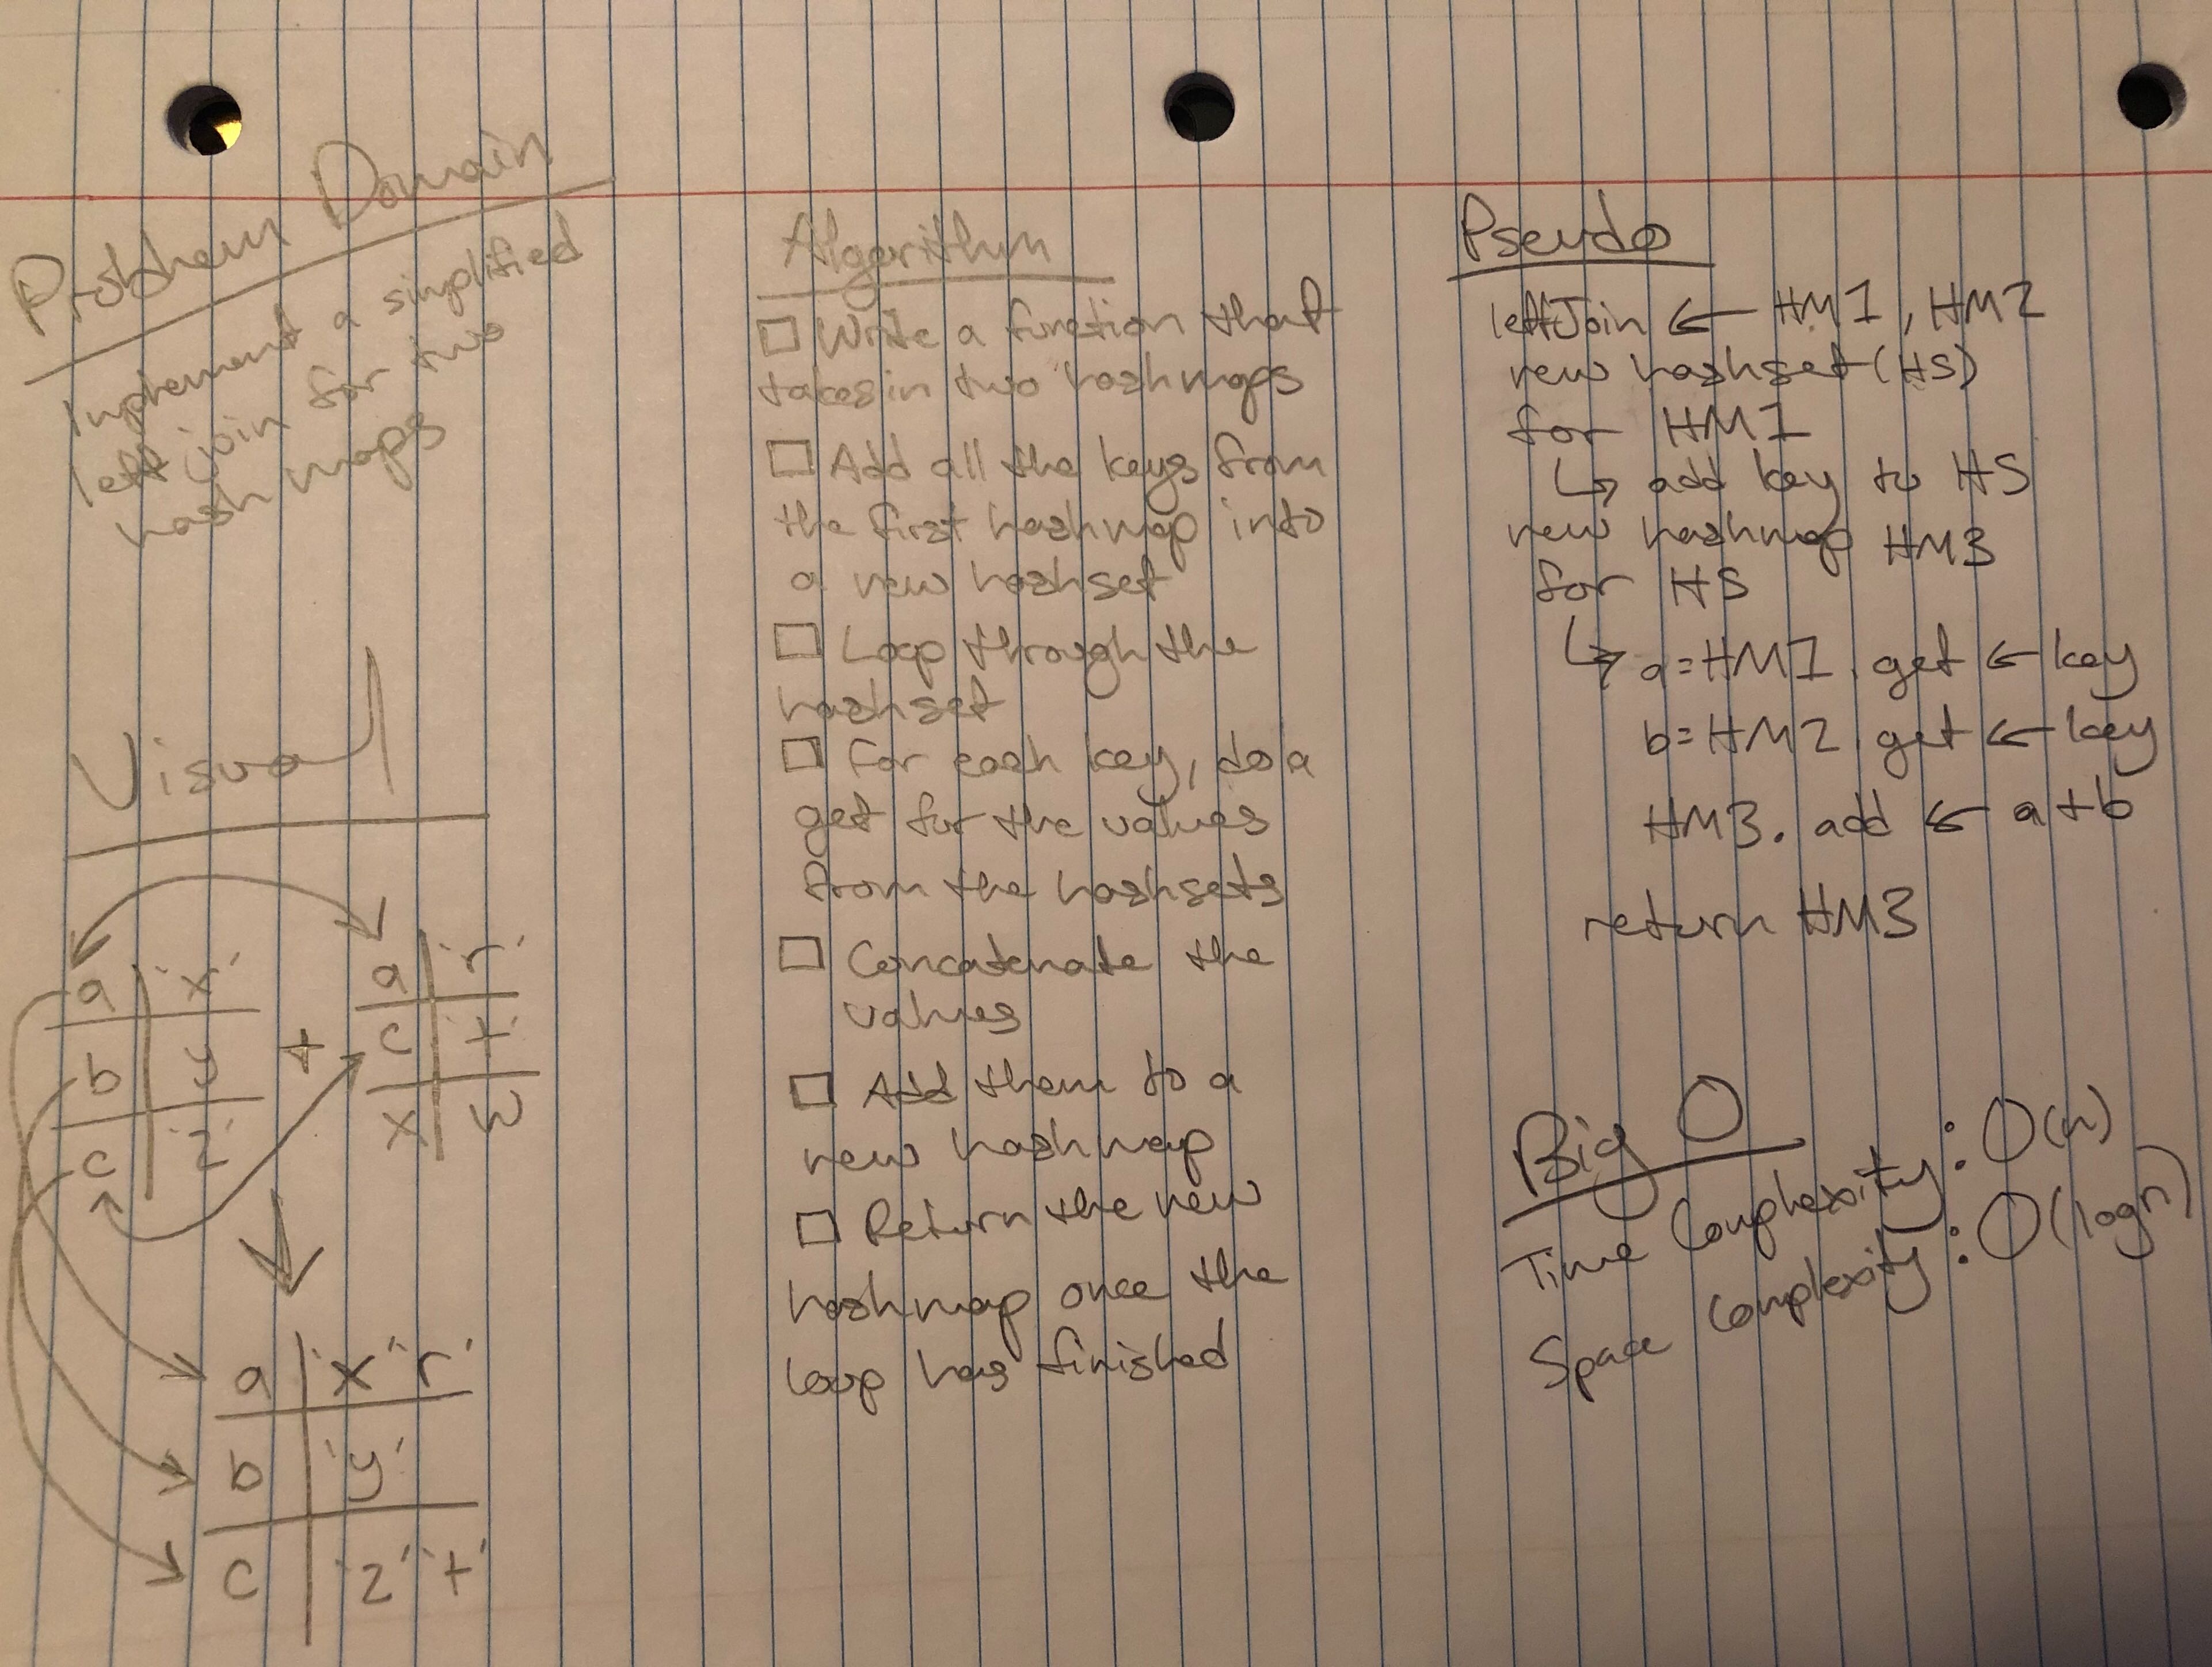 Problem Domain
Implement a simplified
left join for two
hash maps
Visual
a 'x'
b y
c 'z'
+
a 'r'
c 't'
x w
a 'x' 'r'
b 'y'
c 'z' 't'
Algorithm
Write a function that
takes in two hashmaps
Add all the keys from
the first hashmap into
a new hashset
Loop through the
hashset
For each key, do a
get for the values
from the hashsets
Concatenate the
values
Add them to a
new hashmap
Return the new
hashmap once the
loop has finished
Pseudo
leftJoin ← HM1, HM2
new hashset (HS)
for HM1
↳ add key to HS
new hashmap HM3
for HS
↳ a=HM1.get ← key
b=HM2.get ← key
HM3.add ← a+b
return HM3
Big O
Time Complexity: O(n)
Space Complexity: O(log n)